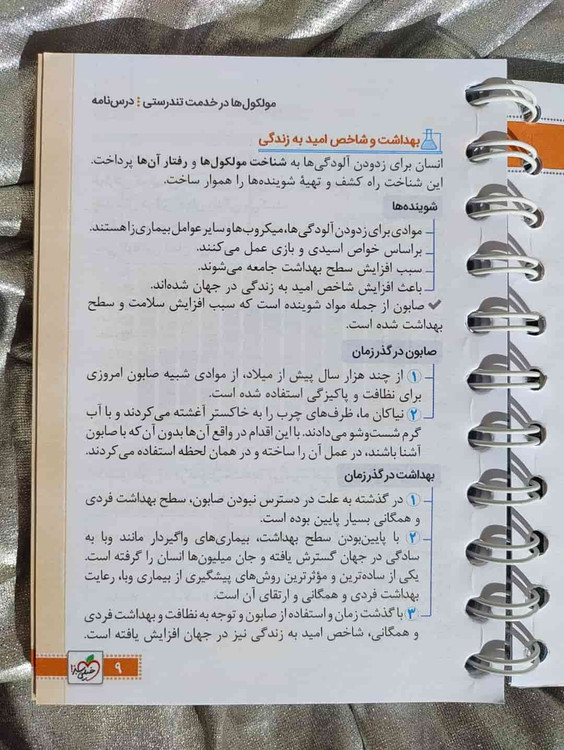 مولکول‌ها در خدمت تندرستی : درس‌نامه
بهداشت و شاخص امید به زندگی
انسان برای زدودن آلودگی‌ها به شناخت مولکول‌ها و رفتار آن‌ها پرداخت.
این شناخت راه کشف و تهیهٔ شوینده‌ها را هموار ساخت.
شوینده‌ها
موادی برای زدودن آلودگی‌ها، میکروب‌ها و سایر عوامل بیماری‌زا هستند.
براساس خواص اسیدی و بازی عمل می‌کنند.
سبب افزایش سطح بهداشت جامعه می‌شوند.
باعث افزایش شاخص امید به زندگی در جهان شده‌اند.
✓ صابون از جمله مواد شوینده است که سبب افزایش سلامت و سطح
بهداشت شده است.
صابون در گذر زمان
۱ از چند هزار سال پیش از میلاد، از موادی شبیه صابون امروزی
برای نظافت و پاکیزگی استفاده شده است.
۲ نیاکان ما، ظرف‌های چرب را به خاکستر آغشته می‌کردند و با آب
گرم شست‌وشو می‌دادند. با این اقدام در واقع آن‌ها بدون آن که با صابون
آشنا باشند، در عمل آن را ساخته و در همان لحظه استفاده می‌کردند.
بهداشت در گذر زمان
۱ در گذشته به علت در دسترس نبودن صابون، سطح بهداشت فردی
و همگانی بسیار پایین بوده است.
۲ با پایین‌بودن سطح بهداشت، بیماری‌های واگیردار مانند وبا به
سادگی در جهان گسترش یافته و جان میلیون‌ها انسان را گرفته است.
یکی از ساده‌ترین و مؤثرترین روش‌های پیشگیری از بیماری وبا، رعایت
بهداشت فردی و همگانی و ارتقای آن است.
۳ با گذشت زمان و استفاده از صابون و توجه به نظافت و بهداشت فردی
و همگانی، شاخص امید به زندگی نیز در جهان افزایش یافته است.
خیلی سبز
۹